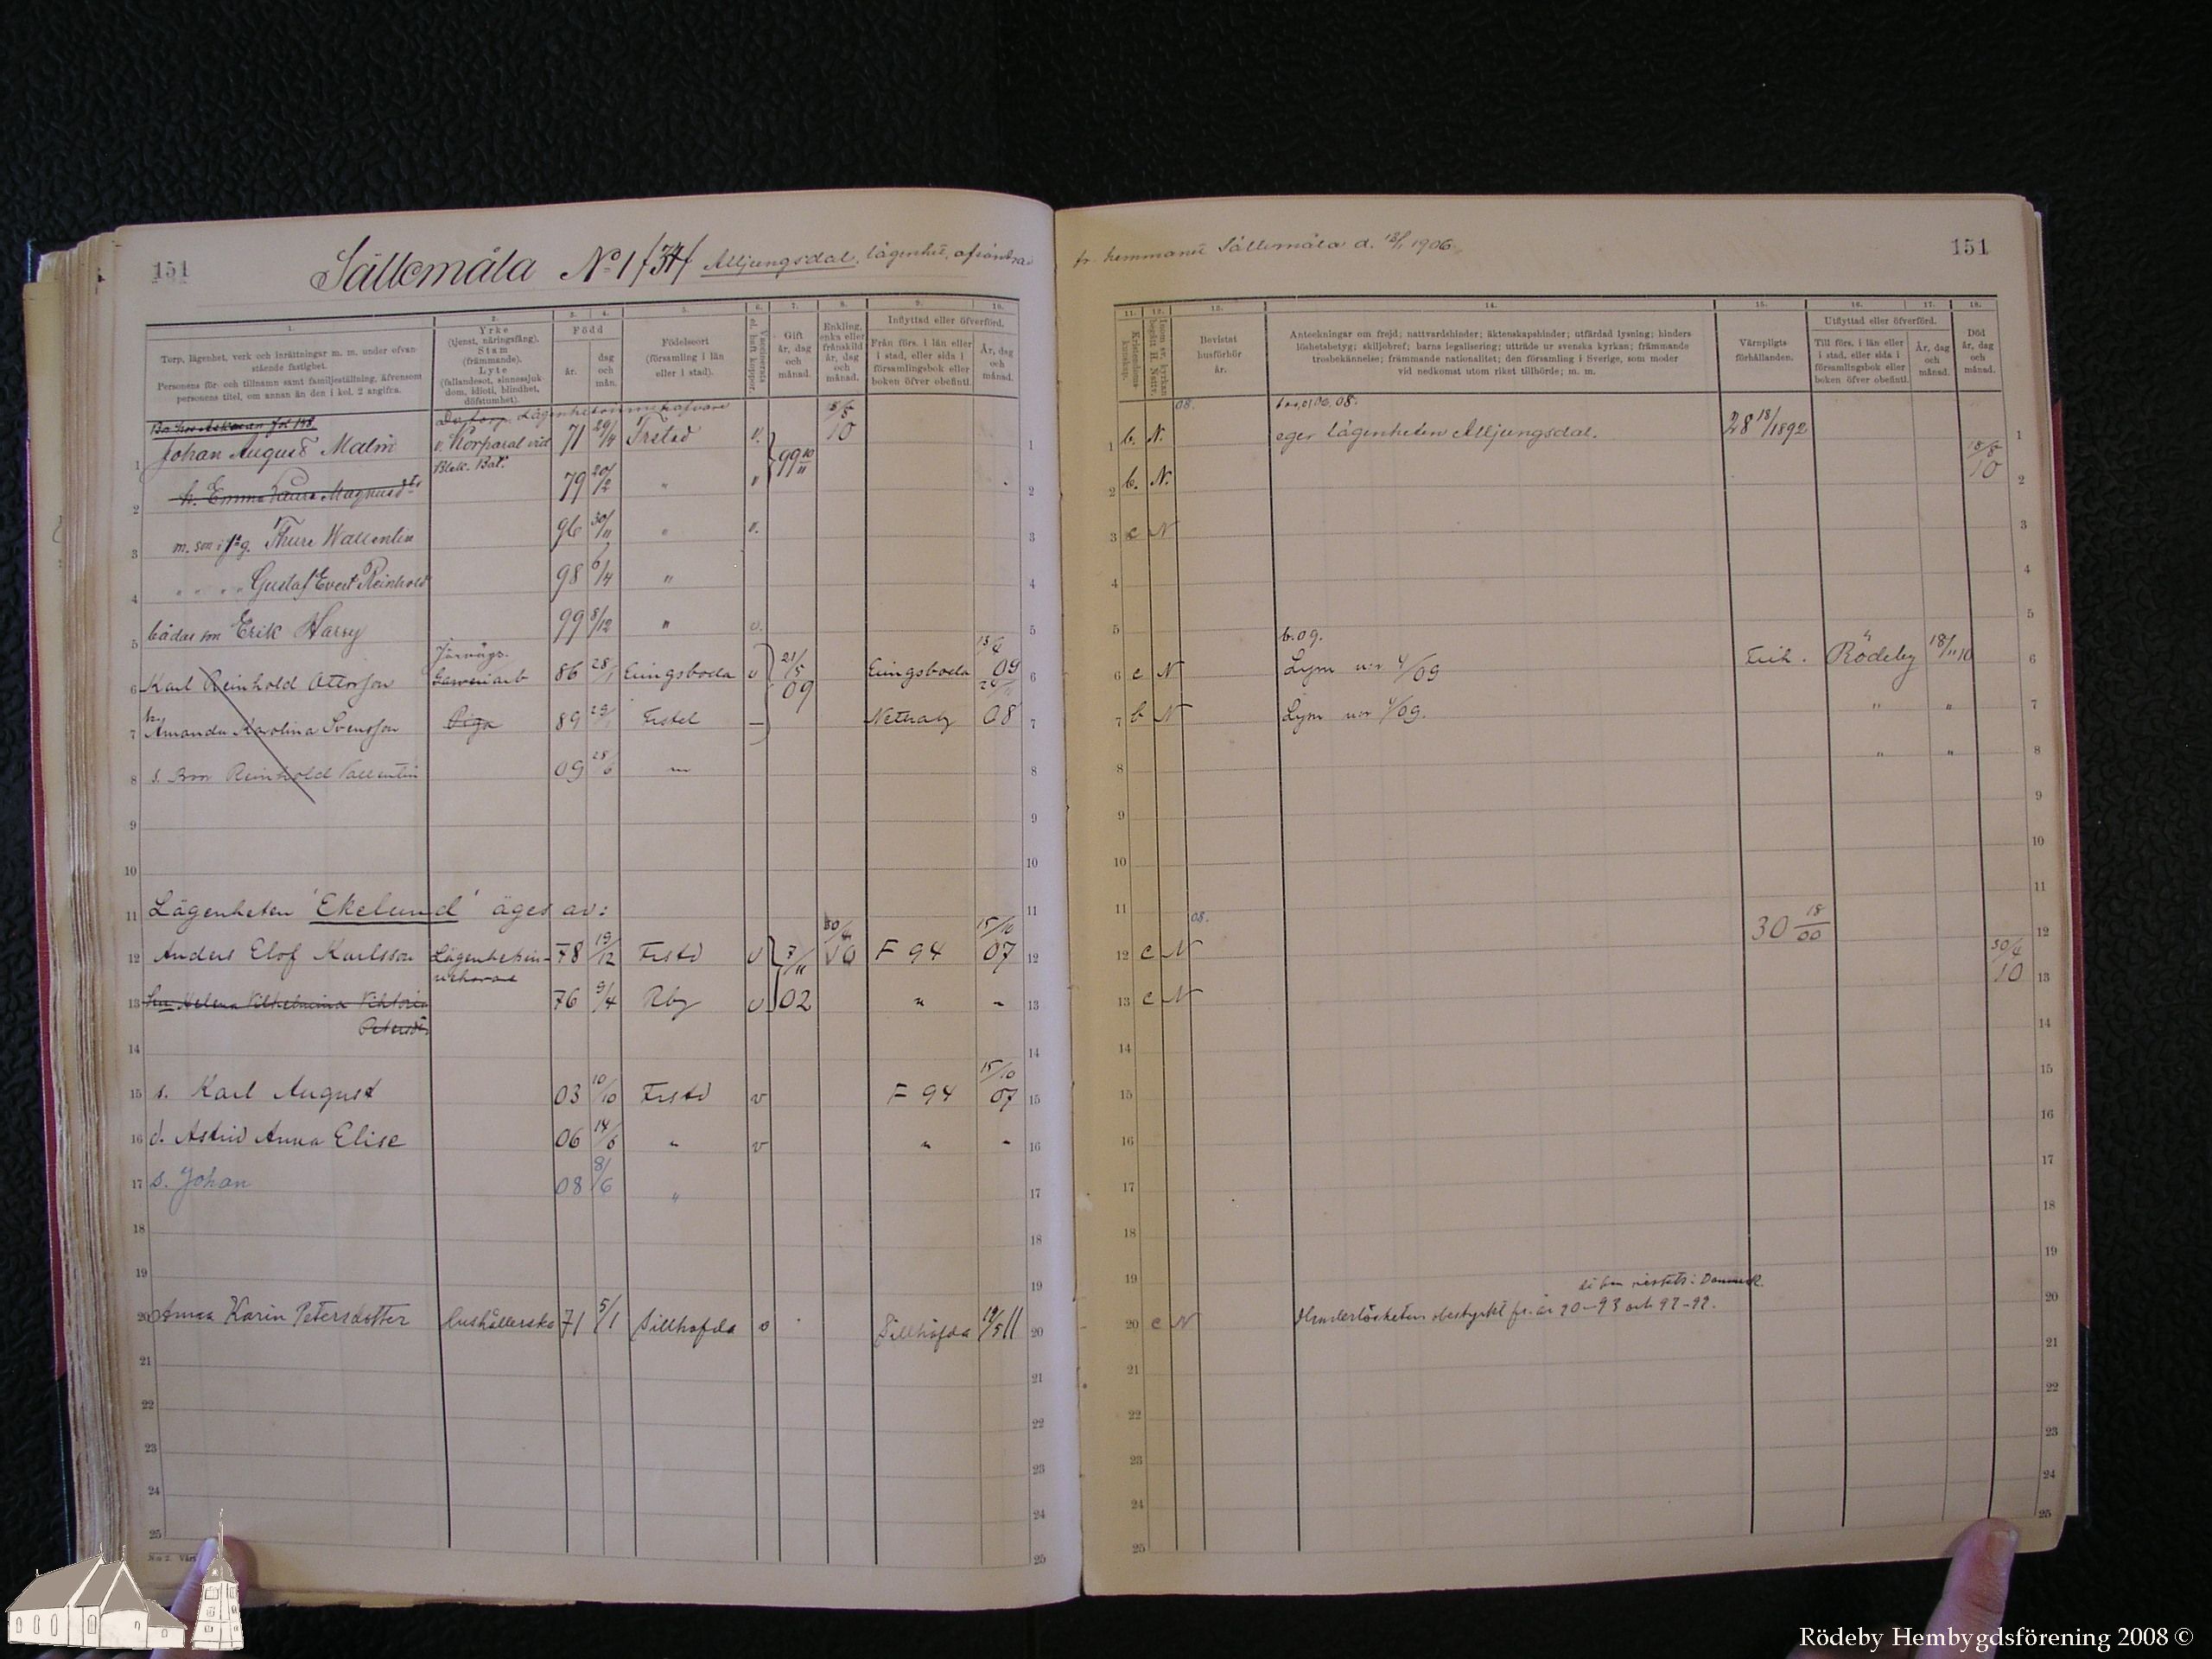 151
Sällemåla No 1 Alljungsdal, lägenhet, afsöndrad
fr. hemmanet Sällemåla d. 13/1 1906
151
1. 2. 3. 4. 5. 6. 7. 8. 9. 10.
Torp, lägenhet, verk och inrättningar m. m. under ofvan-
stående fastighet.
Personens för- och tillnamn samt familjeställning, äfvensom
personens titel, om annan än den i kol. 2 angifna.
Yrke
(tjenst, näringsfång).
Stam
(främmande).
Lyte
(fallandesot, sinnessjuk-
dom, idioti, blindhet,
döfstumhet).
Född
år.
dag
och
mån.
Födelseort
(församling i län
eller i stad).
Vaccinerats
el. haft koppor.
Gift
år, dag
och
månad.
Enkling,
enka eller
frånskild
år, dag
och
månad.
Inflyttad eller öfverförd.
Från förs. i län eller
i stad, eller sida i
församlingsbok eller
boken öfver obefintl.
År, dag
och
månad.
11. 12. 13. 14. 15. 16. 17. 18.
Kristendoms-
kunskap.
Inom sv. kyrkan
begått H. Nattv.
Bevistat
husförhör
år.
Anteckningar om frejd; nattvardshinder; äktenskapshinder; utfärdad lysning; hinders
löshetsbetyg; skiljobref; barns legalisering; utträde ur svenska kyrkan; främmande
trosbekännelse; främmande nationalitet; den församling i Sverige, som moder
vid nedkomst utom riket tillhörde; m. m.
Värnpligts-
förhållanden.
Utflyttad eller öfverförd.
Till förs. i län eller
i stad, eller sida i
församlingsbok eller
boken öfver obefintl.
År, dag
och
månad.
Död
år, dag
och
månad.
08. 08.
1 Johan August Malm v. Korporal vid 71 29/4 Frstad v. 99 10/11 10 b. N. eger lägenheten Alljungsdal. 28 18/1892
Blek. Bat.
2 h. Emma Magnusd:tr 79 20/2 " " b. N. 18/8 10
3 m. son Thure Wallentin 96 30/11 " v. c N
4 " " " " Gustaf Evert Reinhold 98 6/4 "
5 bådas son Erik Harry 99 8/12 " v.
b. 09.
Järnvägs-
6 Karl Reinhold Ottosson arb 86 28/1 Eringsboda v 21/5 09 Eringsboda 09 c N Lysn 4/09 Frik. Rödeby 18/11 10
7 h. Amanda Karolina Svensson Piga 89 Frstd Nettraby 08 b N Lysn 4/09. " "
8 s. Reinhold Vallentin 09 28/6 " "
9
10
11 Lägenheten 'Ekelund' äges av:
08. 30 18/00
12 Anders Elof Karlsson Lägenhetsin- 78 19/12 Frstd v 7/11 02 F 94 15/10 07 c N 30/4 10
nehavare
13 Helena Vilhelmina Viktoria 76 9/4 Rby v " " c N
Petersdtr
14
15 s. Karl August 03 10/10 Frstd v F 94 15/10 07
16 d. Astrid Anna Elise 06 14/6 " v " "
17 s. Johan 08 8/6 "
18
19
20 Anna Karin Petersdotter Hushållerska 71 5/1 Tillhofda v Tillhofda 11 c N Hinderlösheten obestyrkt fr. år 90–93 och 97–99.
21
22
23
24
25
Rödeby Hembygdsförening 2008 ©